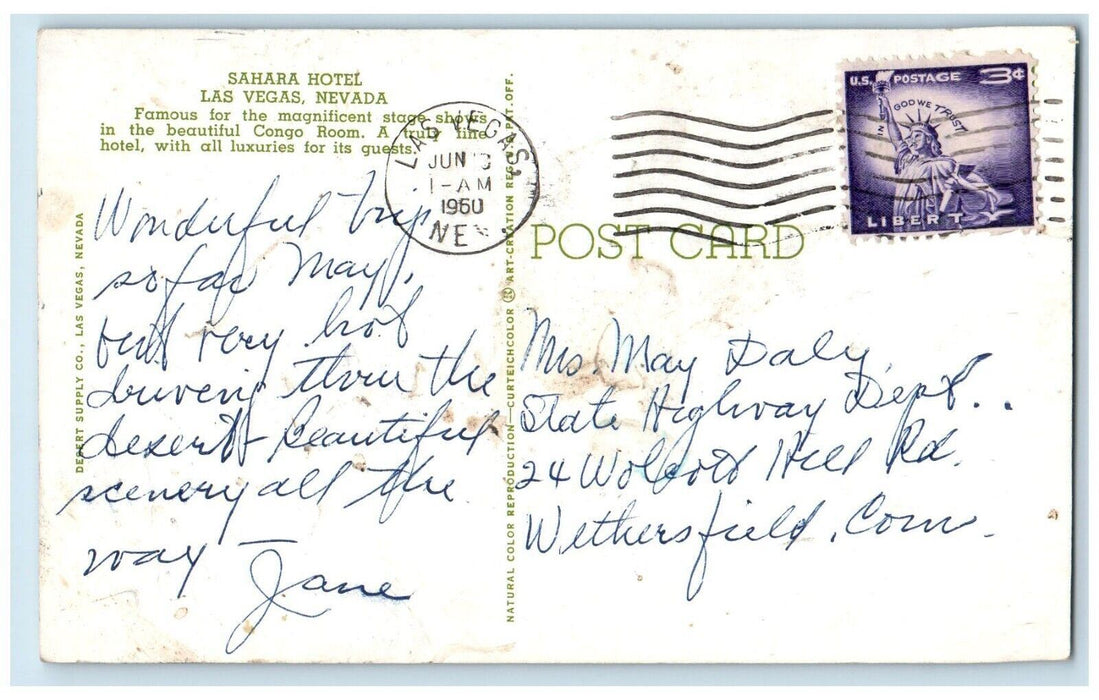 SAHARA HOTEL
LAS VEGAS, NEVADA
Famous for the magnificent stage shows
in the beautiful Congo Room. A truly fine
hotel, with all luxuries for its guests.
LAS VEGAS,
JUN
1-AM
1960
NEV.
U.S. POSTAGE 3¢
IN GOD WE TRUST
LIBERTY
POST CARD
Wonderful trip
so far May,
but very hot
driving thru the
desert - beautiful
scenery all the
way -
Jane
Mrs. May Daly
State Highway Dept..
24 Wolcott Hill Rd.
Wethersfield, Conn.
DESERT SUPPLY CO., LAS VEGAS, NEVADA
NATURAL COLOR REPRODUCTION—CURTEICHCOLOR ® ART-CREATION REG. U.S. PAT. OFF.